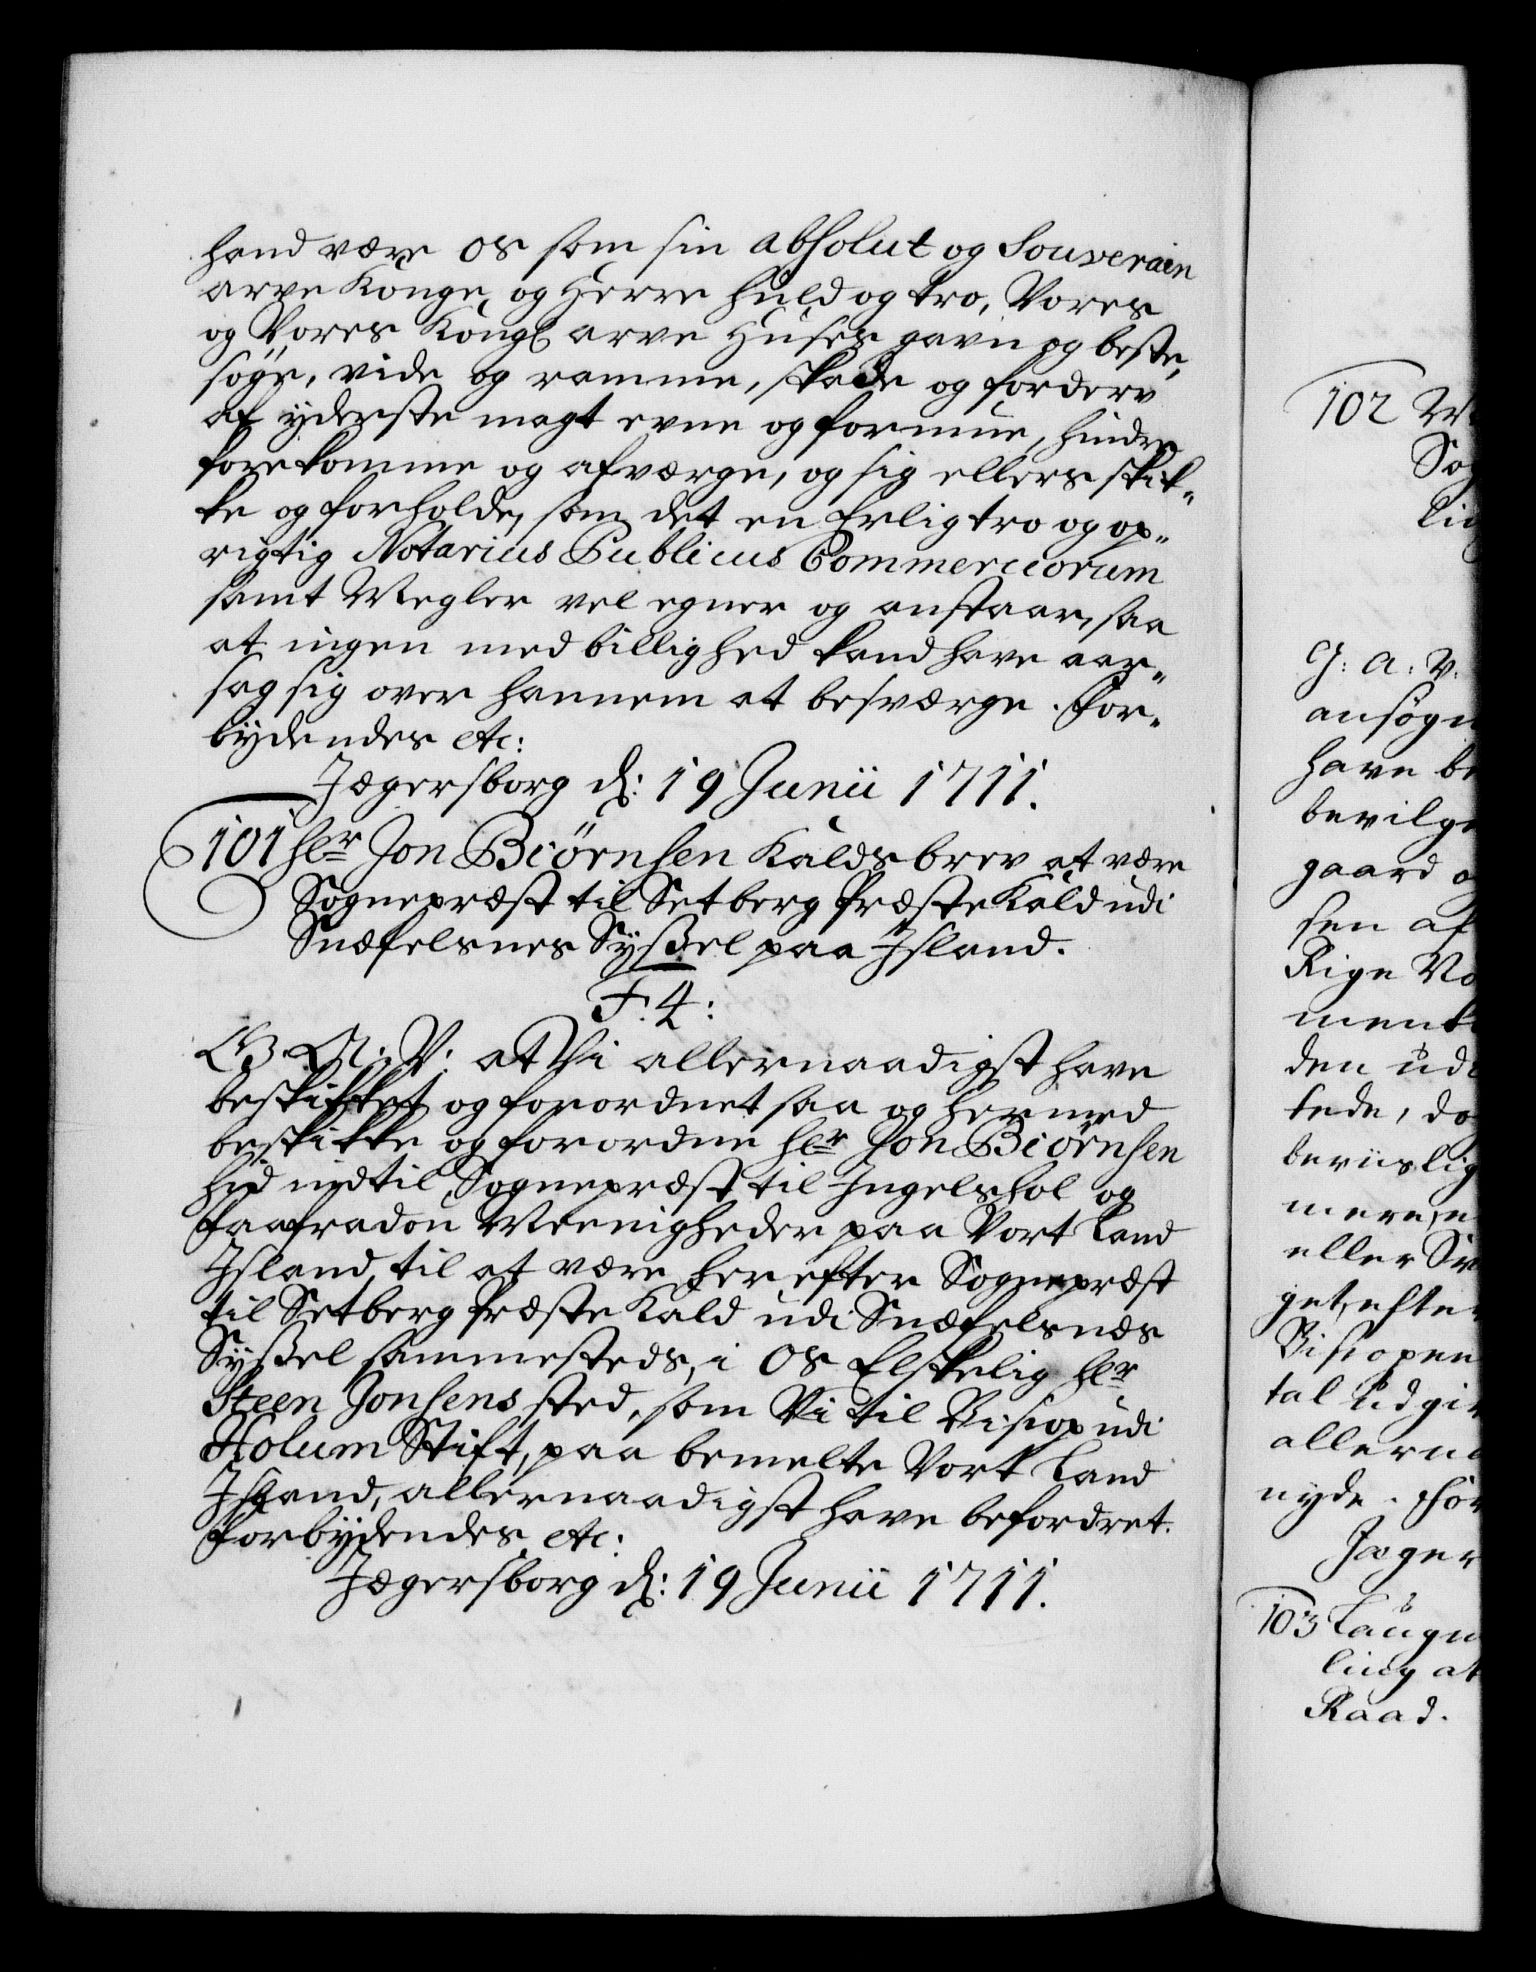 hand være os som sin absolut og Souverain
arve Konge, og Herre huld og tro, Vores
og Vores Kongl arve Huses gavn og beste,
søge, vide og ramme, skade og forderv
af yderste magt evne og formue, hindre
forekomme og afværge, og sig ellers skik„
ke og forholde, som det en Erlig tro og op„
rigtig Notarius Publicus Commerciorum
samt Megler vel egner og anstaar, saa
at ingen med billighed kand have aar„
sag sig over hannem at besværge. For„
bydendes etc:
Jægersborg d: 19 Junii 1711.
101 hr Jon Biørnsen Kaldsbrev at være
Sognepræst til Setberg Præste Kald udi
Snæfelsnes Syssel paa Island.
F. 4:
G. A. V. at Vi allernaadigst have
beskikket og forordnet saa og hermed
beskikke og forordne hr Jon Biørnsen
hid indtil Sognepræst til Ingelshol og
Faafradou Meenigheder paa Vort Land
Island, til at være herefter Sognepræst
til Setberg Præste Kald udi Snæfelsnæs
Syssel sammesteds, i Os Elskelig hr
Steen Jonsens sted, som Vi til Bisop udi
Holum Stift, paa bemelte Vort Land
Island, allernaadigst have befordret.
Forbydendes etc:
Jægersborg d: 19 Junii 1711.
102
Sog
lig
G: A: V:
ansøgn
have be
bevilge
gaard og
sen af
Rige Vo
mente
den udi
tede, do
beviislig
mere, e
eller Sv
get, efter
Bisopen
tal udgiv
allerna
nyde. For
Jæger
103 Laugm
ling at
Raad.